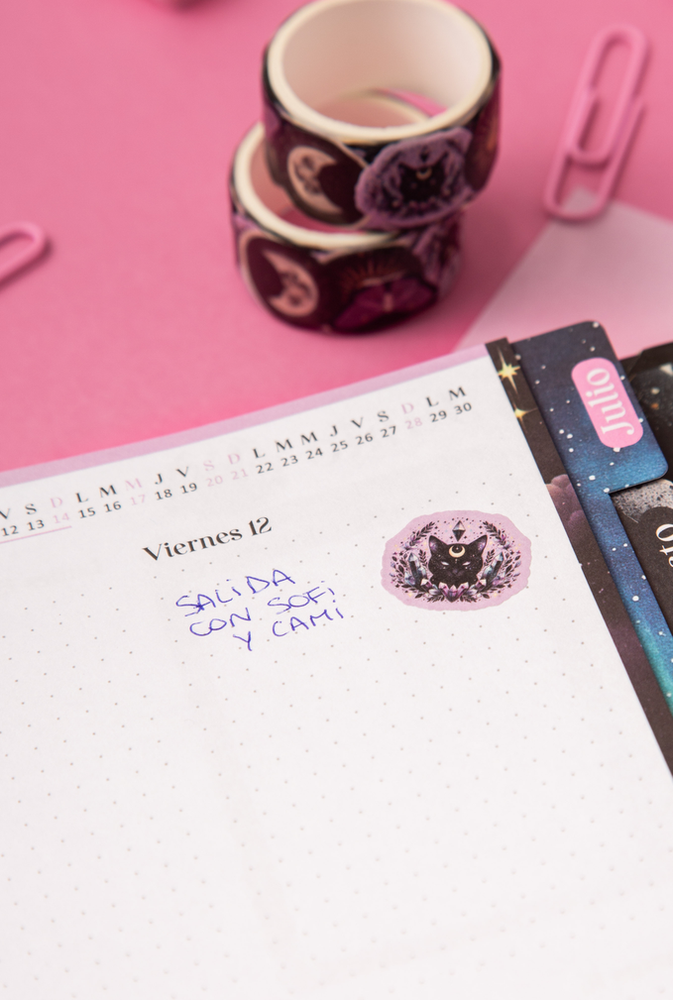 V S D L M M J V S D L M M J V S D L M
12 13 14 15 16 17 18 19 20 21 22 23 24 25 26 27 28 29 30
Viernes 12
SALIDA
CON SOFI
Y CAMI
Julio